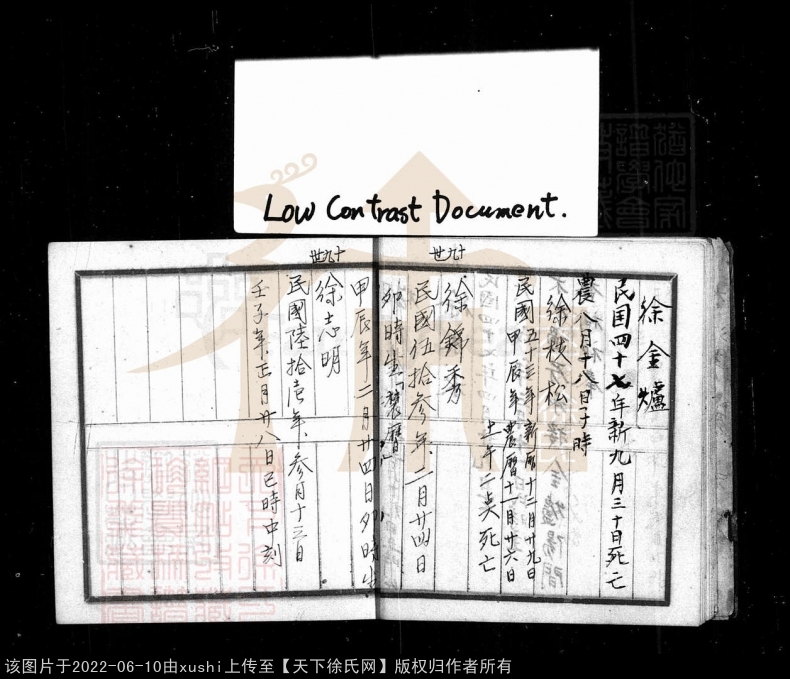 Low Contrast Document.
徐金爐
民国四十七年新九月三十日死亡
農八月十八日子時
徐枝松
民國五十三年新历十二月廿九日
甲辰年農曆十一月廿六日
上午二点死亡
十九世
徐錦秀
民國伍拾參年二月廿四日
卯時生「農曆」
甲辰年二月廿四日卯時生
十九世
徐志明
民國陸拾壹年參月十三日
壬子年正月廿八日巳時中刻
该图片于2022-06-10由xushi上传至【天下徐氏网】版权归作者所有